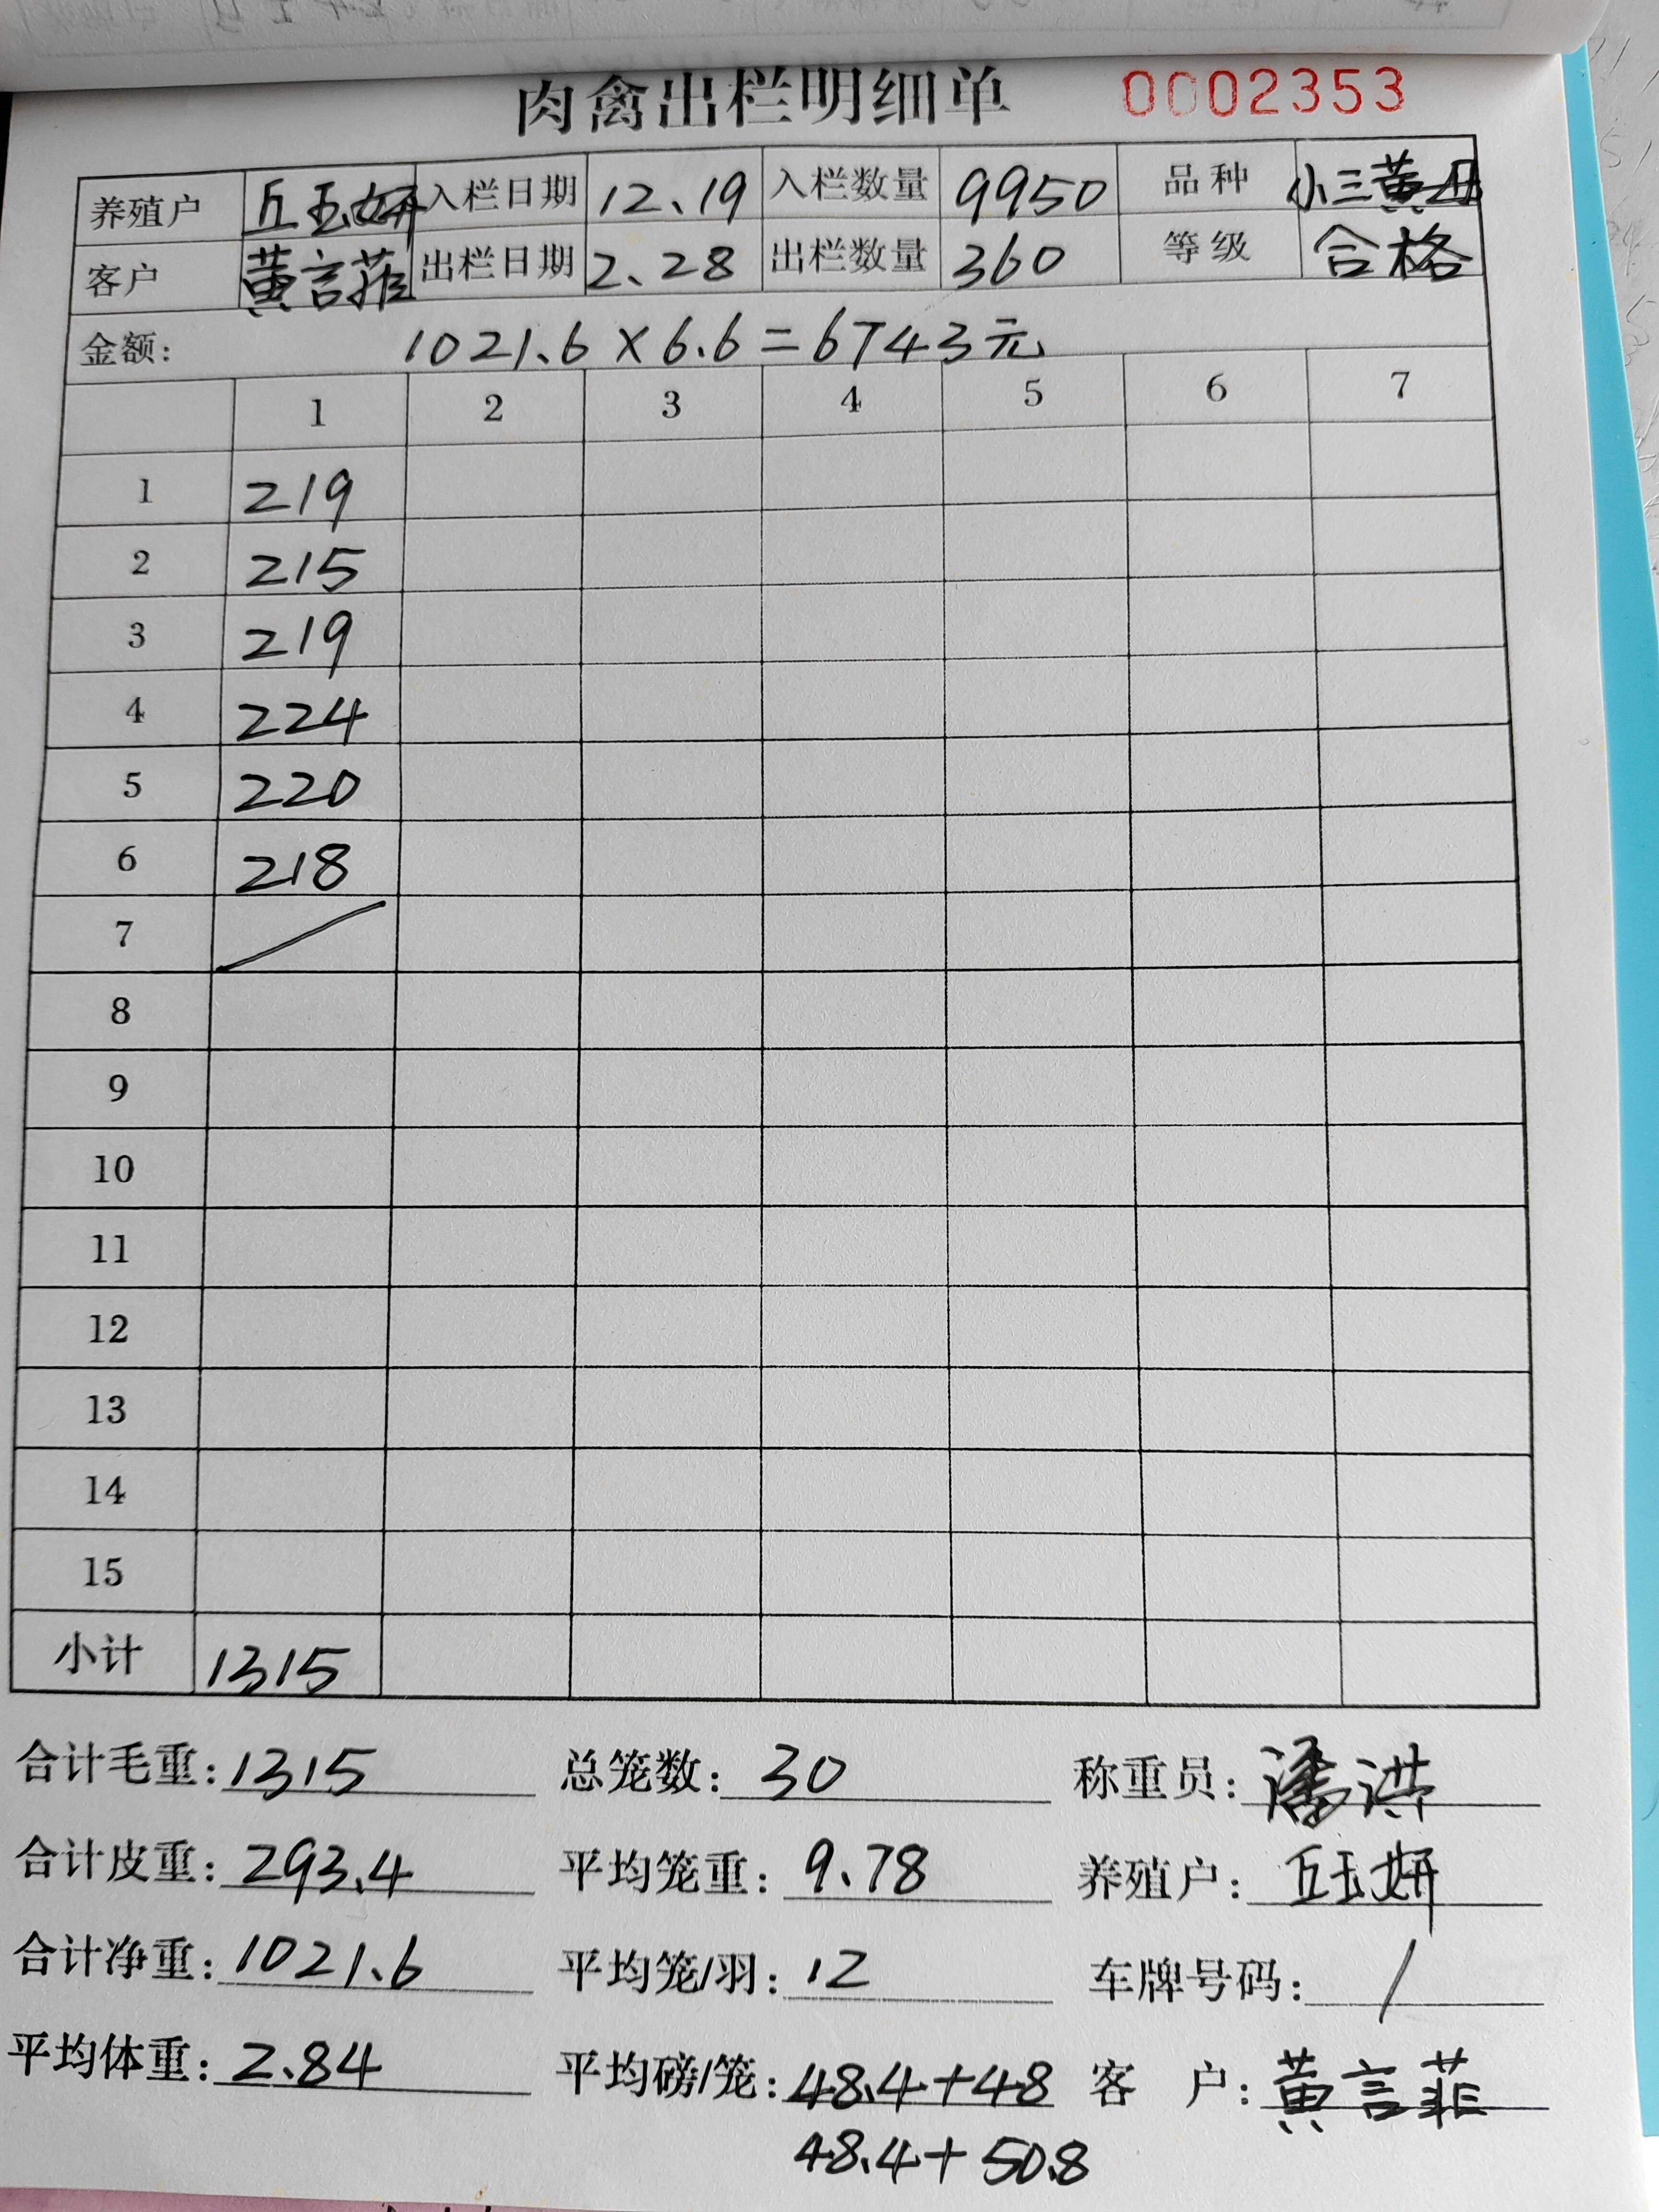 肉禽出栏明细单 0002353
养殖户 丘玉妍 入栏日期 12.19 入栏数量 9950 品种 小三黄母
客户 黄言菲 出栏日期 2.28 出栏数量 360 等级 合格
金额: 1021.6×6.6=6743元
1 2 3 4 5 6 7
1 219
2 215
3 219
4 224
5 220
6 218
7 /
8
9
10
11
12
13
14
15
小计 1315
合计毛重: 1315 总笼数: 30 称重员: 潘洪
合计皮重: 293.4 平均笼重: 9.78 养殖户: 丘玉妍
合计净重: 1021.6 平均笼/羽: 12 车牌号码: /
平均体重: 2.84 平均磅/笼: 48.4+48 客 户: 黄言菲
48.4+50.8